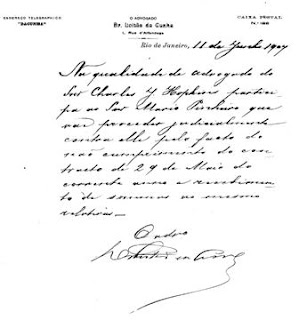 ENDEREÇO TELEGRAPHICO
"DACUNHA"
O ADVOGADO
Dr. Leitão da Cunha
CAIXA POSTAL
Rio de Janeiro, 11 de Junho 1907
Na qualidade de Advogado do
Snr Charles J Hopkins partici-
pa ao Snr Mario Pinheiro que
vae proceder judicialmente
contra elle pelo facto do
não cumprimento do con-
tracto de 29 de Maio do
corrente anno e
de sommas ao mesmo
relativas.